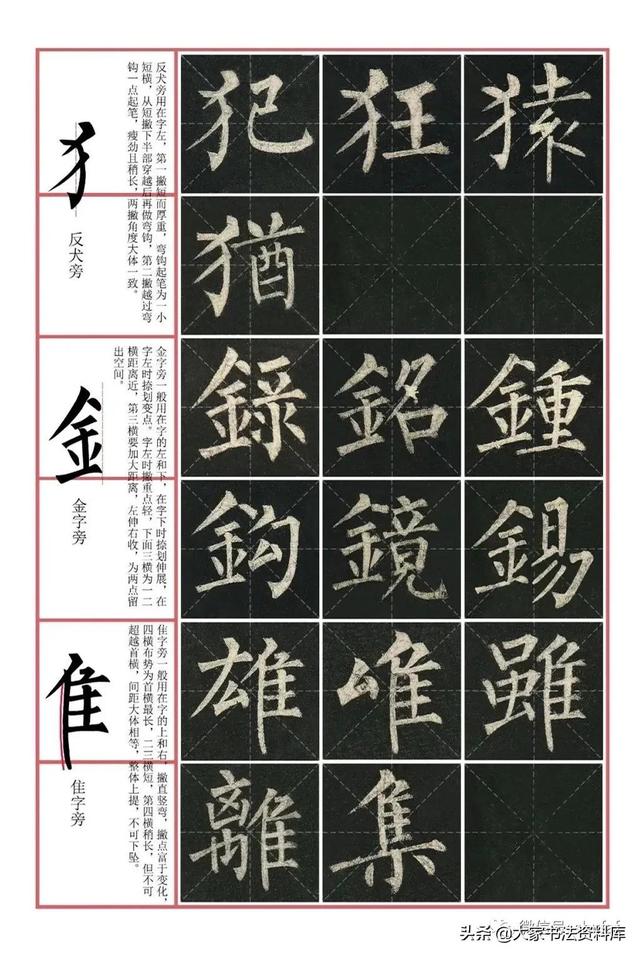 犭
反犬旁
反犬旁用在字左，第一撇短而厚重，弯钩起笔为一小
短横，从短撇下半部穿越后再做弯钩，第二撇越过弯
钩一点起笔，瘦劲且稍长，两撇角度大体一致。
犯 狂 猿
猶
金
金字旁
金字旁一般用在字的左和下，在字下时捺划伸展，在
字左时捺划变点。字左时撇重点轻，下面三横为一二
横距离近，第三横要加大距离，左伸右收，为两点留
出空间。
錄 銘 鍾
鈎 鏡 錫
隹
隹字旁
隹字旁一般用在字的上和右，撇直竖弯，撇点富于变化，
四横布势为首横最长，二三横短，第四横稍长，但不可
超越首横，间距大体相等，整体上提，不可下坠。
雄 唯 雖
離 集
微信号:
头条@大家书法资料库